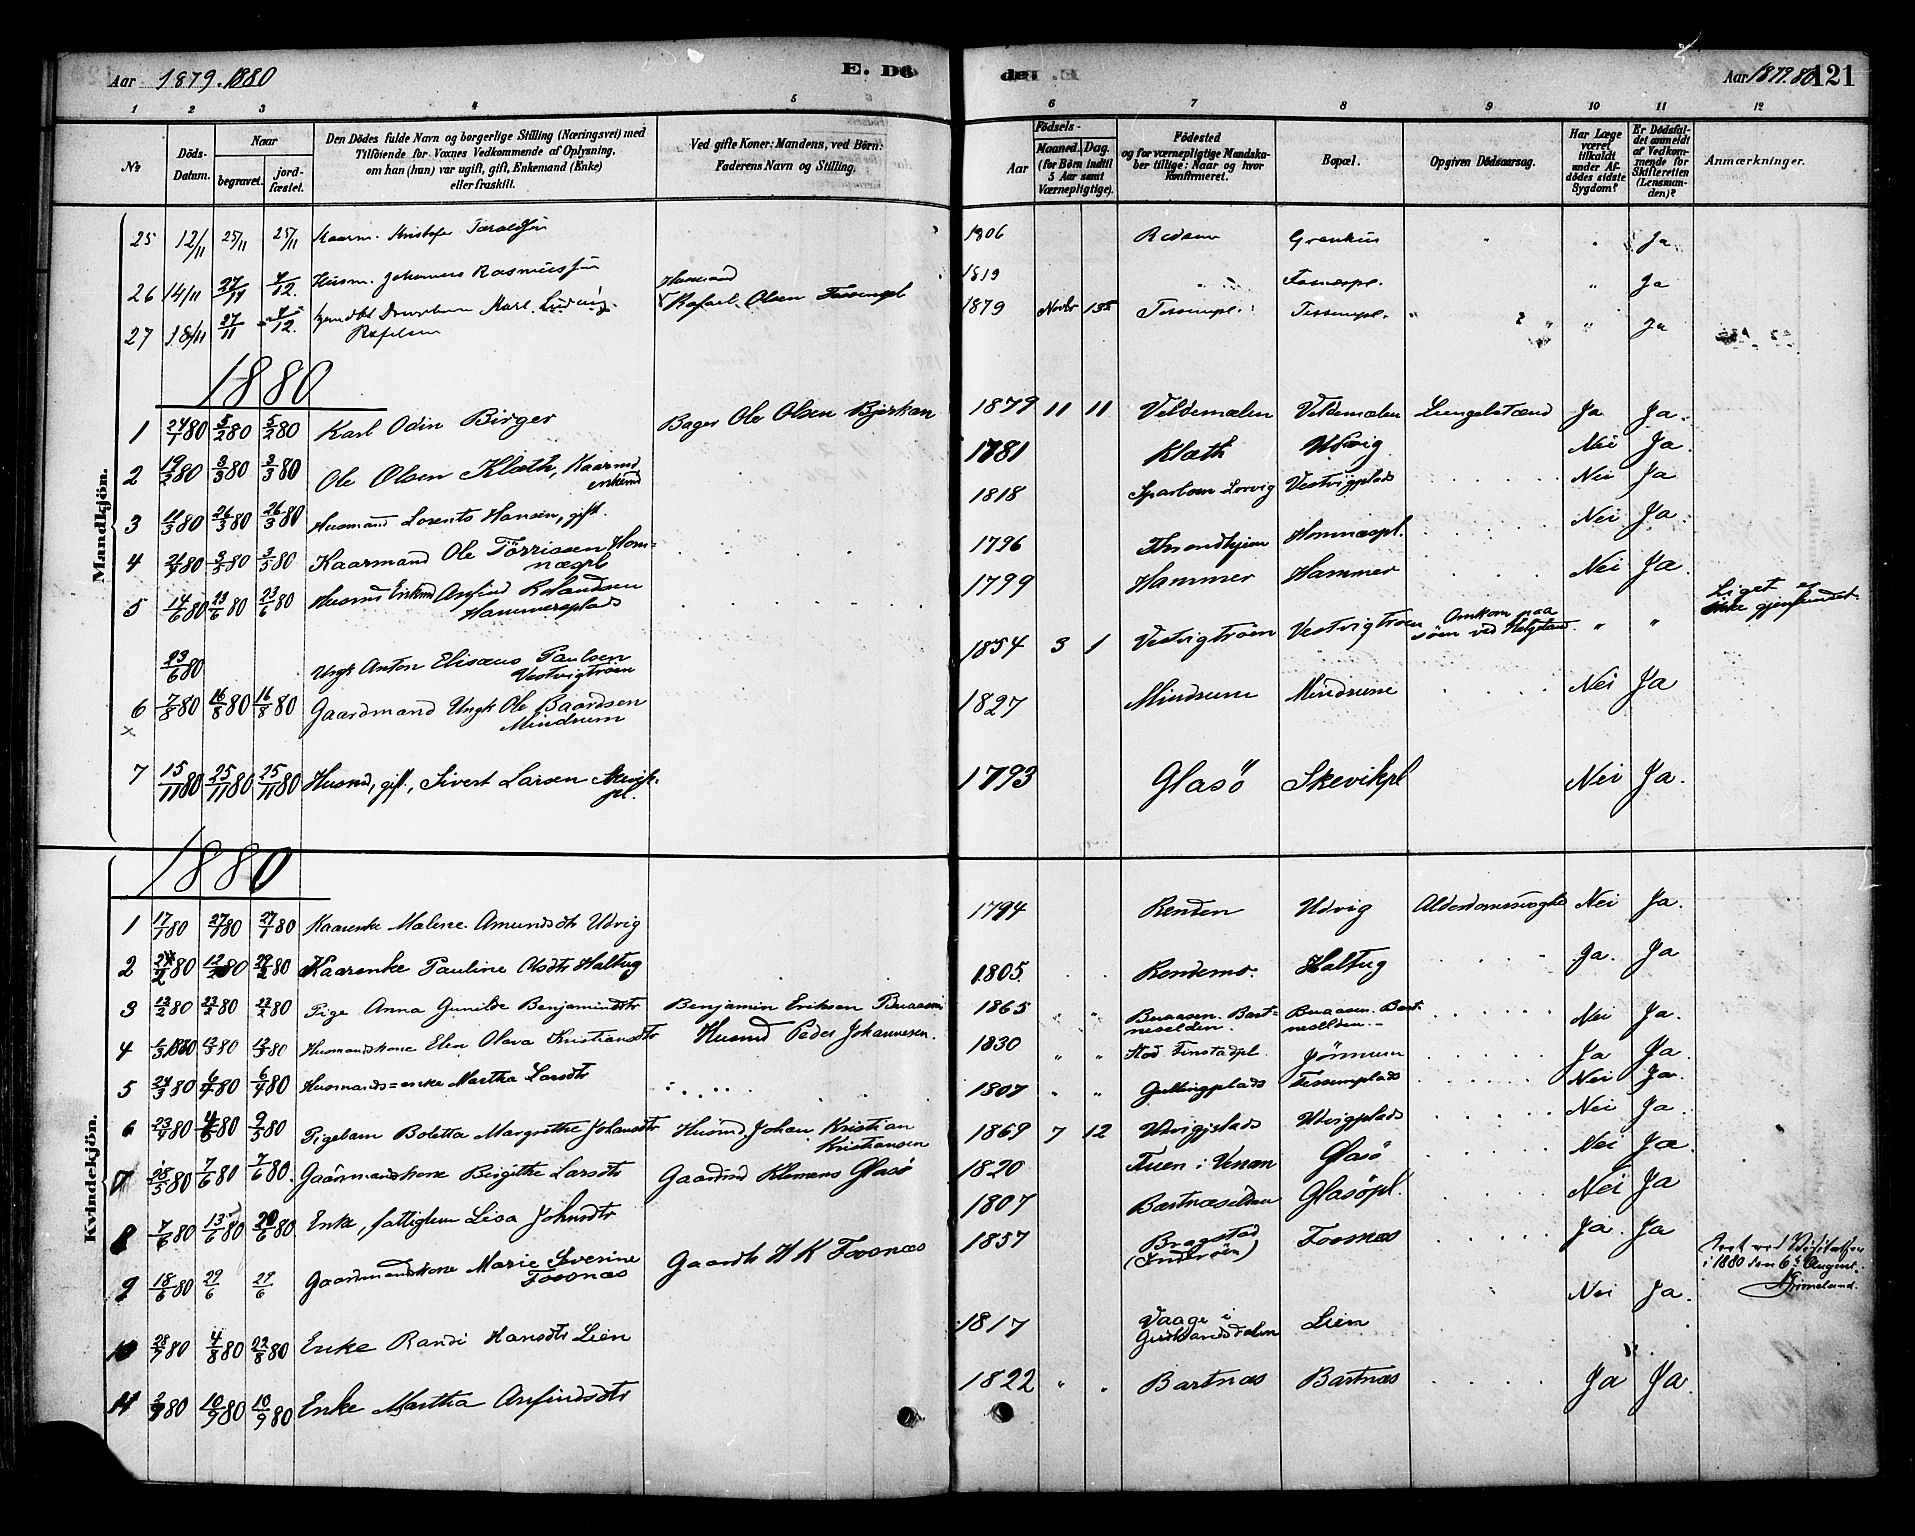 Aar 1879. 1880
E. Dö
den
Aar 1879.80
121
1 2 3 4 5 6 7 8 9 10 11 12
№
Döds-Datum.
Naar
begravet.
jordfæstet.
Den Dödes fulde Navn og borgerlige Stilling (Næringsvei) med
Tilföiende for Voxnes Vedkommende af Oplysning,
om han (hun) var ugift, gift, Enkemand (Enke)
eller fraskilt.
Ved gifte Koner: Mandens, ved Börn:
Faderens Navn og Stilling.
Födsels-
Aar
Maaned. Dag.
(for Börn indtil
5 Aar samt
Værnepligtige).
Födested
og for værnepligtige Mandska-
ber tillige: Naar og hvor
Konfirmeret.
Bopæl.
Opgiven Dödsaarsag.
Har Læge
været
tilkaldt
under Af-
dödes sidste
Sygdom?
Er Dödsfal-
det anmeldt
af Vedkom-
mende for
Skifteretten
(Lensman-
den)?
Anmærkninger.
Mandkjön.
25 12/11 25/11 25/11 Kaarm. Kristofer Taraldsen 1806 Ja
26 14/11 27/11 7/12. Husm. Johannes Rasmussen 1819 " Ja
27 18/11 27/11 7/12. Karl Ludvig Rafelsen
Husmand Rafael Olsen Tessempl 1879 Novbr 15 Tessempl. Tessempl. " " Ja
1880
1 24/1 80 5/2 80 5/2 80 Karl Odin Birger Bager Ole Olsen Bjerkan 1879 11 11 Veldemælen Veldemælen Lungebetænd Ja Ja.
2 19/2 80 3/3 80 3/3 80 Ole Olsen Klæth, Kaarmd enkemd 1781 Klæth Udvig Nei Ja.
3 11/3 80 26/3 80 26/3 80 Husmand Lorents Hansen, gift. 1818 Vestvigplads Nei Ja
4 80 3/5 80 3/5 80 Kaarmand Ole Törrissen Homnæspl 1796 Throndhjem Homnæspl. Nei Ja.
5 14/6 80 23/6 80 23/6 80 Husmd Enkmd Arnfind Rolandsen
Hammersplads 1799 Hammer Hammer Nei Ja.
23/6 80 Ungk Anton Elisæus Paulsen
Vestvigtröen 1854 3 1 Vestvigtröen Vestvigtröen Omkom paa
söen ved Helgeland. " " Liget er
ikke gjenfundet.
6 7/8 80 16/8 80 16/8 80 Gaardmand Ungk Ole Baardsen
Mindrum 1827 Mindrum Mindrum Nei Ja
×
7 15/11 80 25/11 80 25/11 80 Husmd, gift, Sivert Larsen Skevik-
pl. 1793 Glasö Skevikpl Nei Ja.
Kvindekjön.
1880
1 17/1 80 27/1 80 27/1 80 Kaarenke Malene Amundsdtr Udvig 1794 Renden Udvig Alderdomssvaghed Nei Ja.
2 80 12/2 80 80 Kaarenke Pauline Olsdtr Haltug 1805. Rendemo. Haltug Ja. Ja
3 13/2 80 23/2 80 23/2 80 Pige Anna Gunilde Benjaminsdtr Benjamin Eriksen Buaasen 1865 " " Buaasen. Bart-
næselden. Buaasen. Bart-
næselden. Nei Ja.
4 1880 13/3 80 13/3 80 Husmandskone Elen Olava Kristiansdtr Husmd Peder Johannesen. 1830 " " Stod Finstadpl. Jörnum Ja Ja.
5 24/3 80 6/4 80 6/4 80 Husmands=enke Martha Larsdtr 1807 " " Gullingplads Tessemplads Nei Ja.
6 23/4 80 4/5 80 9/5 80 Pigebarn Boletta Margrethe Johansdtr Husmd Johan Kristian
Kristiansen 1869 7 12 Udvigplads Udvigplads Nei Ja.
7 28/5 80 7/6 80 7/6 80. Gaardmandskone Birgithe Larsdtr Gaardmd Klemens Glasö 1820 Glasö Nei Ja.
8 7/6 80 13/6 80 20/6 80. Enke, fattiglem Lisa Johnsdtr 1807 Bartnæselden Glasöpl. Nei Ja
9 18/6 80 29/6 29/6 Gaardmandskone Marie Severine
Fosnæs Gaardb H K Fosnæs 1857 Bragstad
(Inderöen) Fosnæs Ja. Ja
Seet ved Visitatsen
i 1880 den 6te August.
Grimelund.
10 28/7 80 4/8 80 22/8 80 Enke Randi Hansdtr Lien 1817 Vaage i
Gudbrandsdalen Lien Nei Ja.
11 80 10/9 80 10/9 80 Enke Martha Arnfindsdtr 1822 " " Bartnæs Bartnæs Ja Ja.